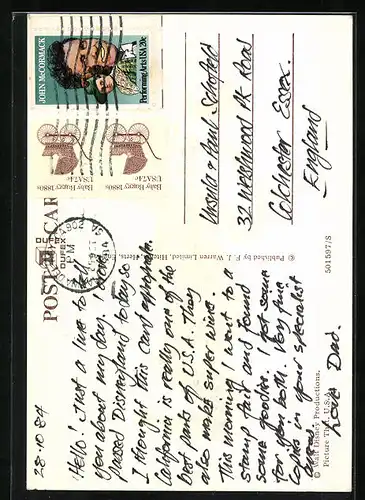 28.10.84
Hello! Just a line to tell
you about my day. I
Passed Disneyland today so
I thought this card appropriate.
California is really one of the
best parts of U.S.A. They
also make super wine.
This morning I went to a
stamp fair and found
some goodies. I got some
for you both. Very fine
copies in your specialist
Love Dad.
POST CARD
DUFEX
DUFEX
PM
© Published by F. J. Warren Limited, Hitchin, Herts, England
© Walt Disney Productions.
Picture Taken U.S.A.
501597/S
JOHN McCORMACK
Performing Arts USA 20c
Baby Buggy 1880s
USA 7.4c
Baby Buggy 1880s
USA 7.4c
Ursula & Paul Schofield
32 Westwood Pk Road
Colchester Essex.
England